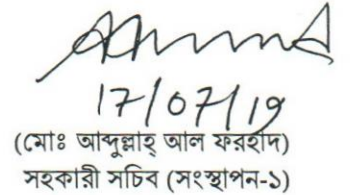 17/07/19
(মোঃ আব্দুল্লাহ্ আল ফরহাদ)
সহকারী সচিব (সংস্থাপন-১)